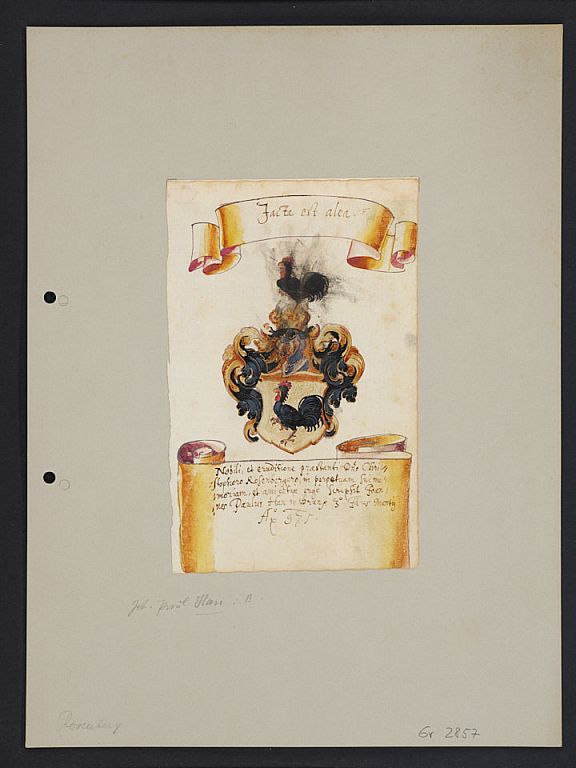 Jacta est alea.
Nobili, et eruditione præstanti Dno Chri-
stophero Rosenbergero, in perpetuam sui me-
moriam, et amicitiæ ergo
nes Paulus Han
Joh. Paul Han : B.
Rosenberg
Gr 2857